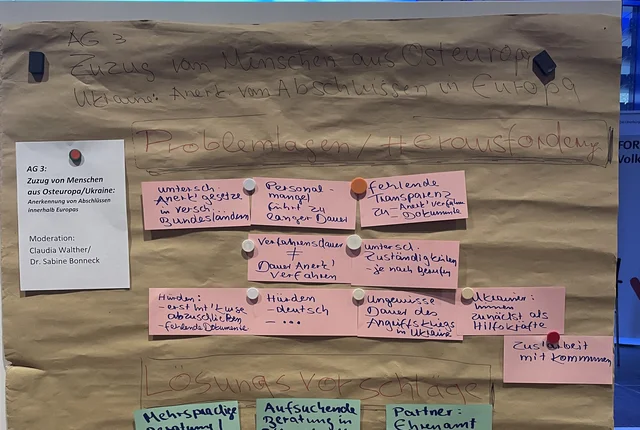 AG 3
Zuzug von Menschen aus Osteuropa
Ukraine: Anerk von Abschlüssen in Europa
Problemlagen / Herausforderg
AG 3:
Zuzug von Menschen
aus Osteuropa/Ukraine:
Anerkennung von Abschlüssen
innerhalb Europas
Moderation:
Claudia Walther/
Dr. Sabine Bonneck
untersch.
Anerk'gesetze
in versch.
Bundesländern
Personal-
mangel
führt zu
langer Dauer
fehlende
Transparenz
zu Anerk'verfahren
Dokumente
Verfahrensdauer
≠
Dauer Anerk'
verfahren
untersch.
Zuständigkeiten
- je nach Berufen
Hürden:
- erst Int'kurse
abzuschließen
- fehlende Dokumente
Hürden
- deutsch
- ...
Ungewisse
Dauer des
Angriffskriegs
in Ukraine
Ukrainer:
zunächst als
Hilfskräfte
Zus'arbeit
mit Kommunen
Lösungsvorschläge
Mehrsprachige
Beratung!
Aufsuchende
Beratung in
Partner:
Ehrenamt
FOR
Volk